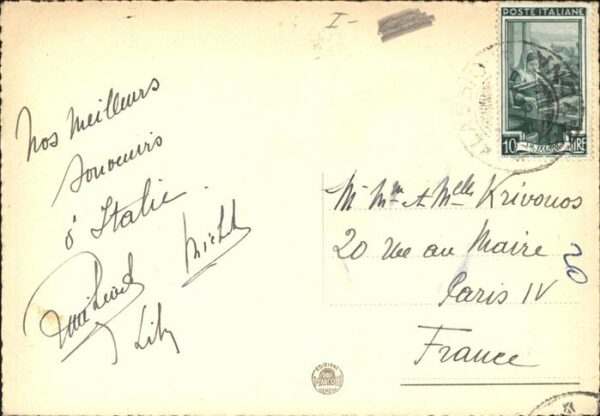 I-
POSTE ITALIANE
10 LIRE
Nos meilleurs
souvenirs
d'Italie
Lily
M. Mme & Melles Krivonos
20 Rue au Maire
Paris IV
France
20
EDIZIONE